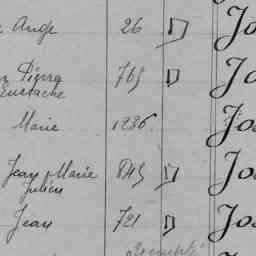 Ange 26 D Jo
Pierre 765 D Jo
Eustache
Marie 1286 Jo
Jean Marie 845 D Jo
Julien
Jean 721 D Jo